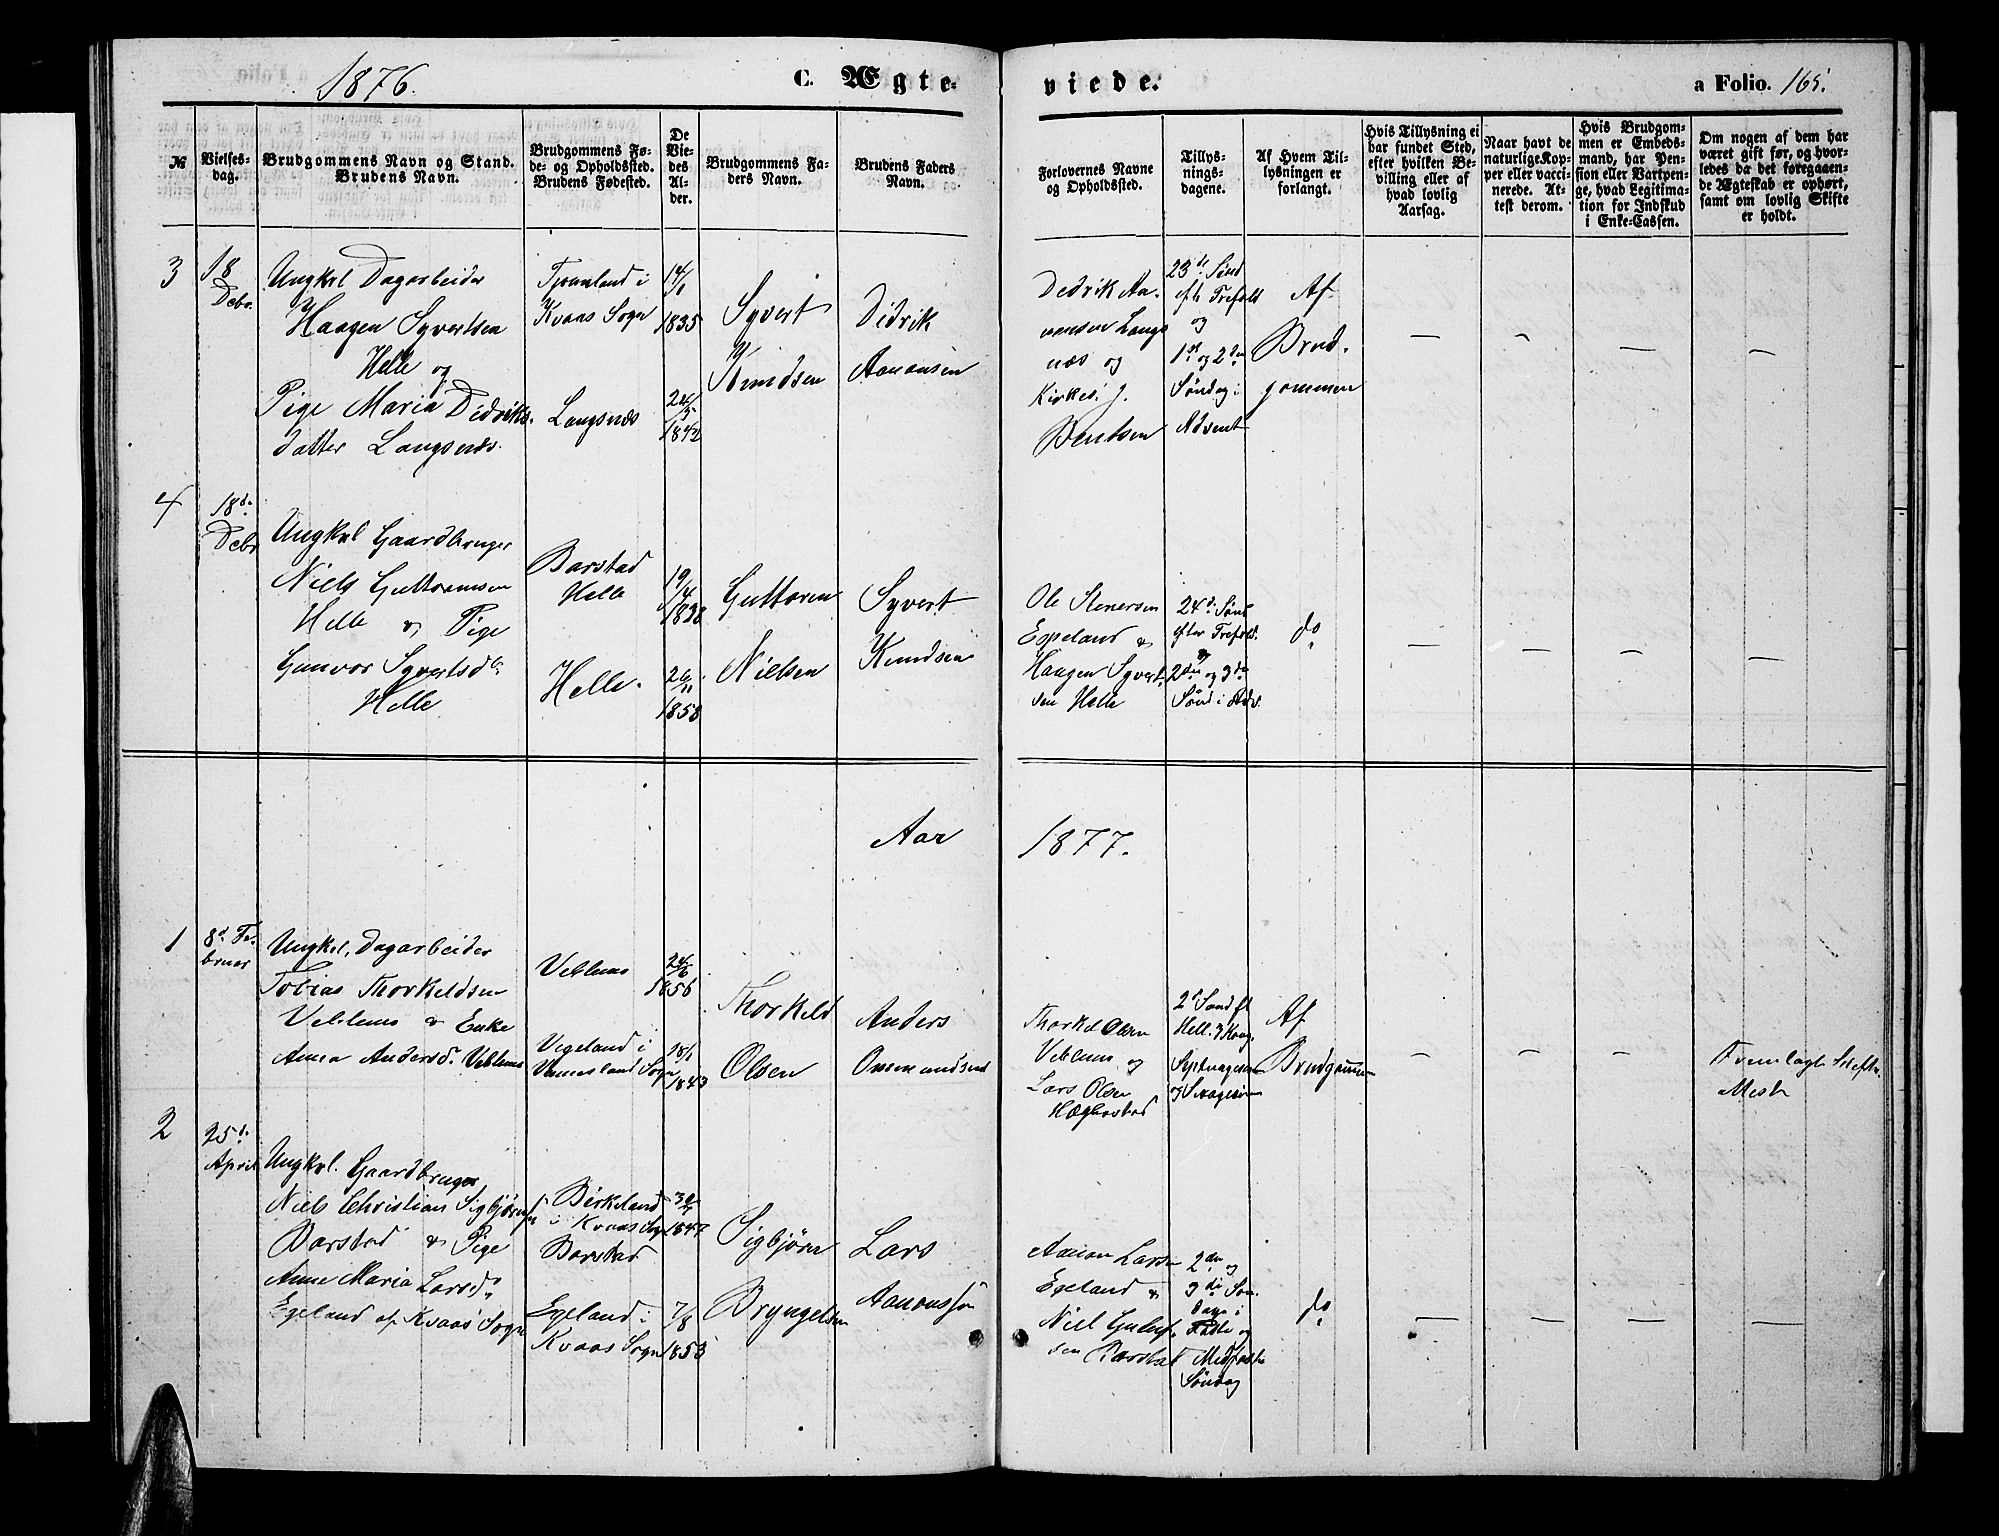 1876.
C. Ægte-
viede.
a Folio. 165.
№
Vielses-
dag.
Brudgommens Navn og Stand.
Brudens Navn.
Brudgommens Fø-
de- og Opholdssted.
Brudens Fødested.
De
Vie-
des
Al-
der.
Brudgommens Fa-
ders Navn.
Brudens Faders
Navn.
Forlovernes Navne
og Opholdssted.
Tillys-
nings-
dagene.
Af Hvem Til-
lysningen er
forlangt.
Hvis Tillysning ei
har fundet Sted,
efter hvilken Be-
villing eller af
hvad lovlig
Aarsag.
Naar havt de
naturlige Kop-
per eller vacci-
nerede. At-
test derom.
Hvis Brudgom-
men er Embeds-
mand, har Pen-
sion eller Vartpen-
ge, hvad Legitima-
tion for Indskud
i Enke-Cassen.
Om nogen af dem har
været gift før, og hvor-
ledes da det foregaaen-
de Ægteskab er ophørt,
samt om lovlig Skifte
er holdt.
3
18
Debr.
Ungkrl Dagarbeider
Haagen Syvertsen
Helle og
Pige Maria Didriks-
datter Langsnæs.
i
Kvaas Sogn
Langsnæs
14/1
1835
24/5
1842
Syvert
Knudsen
Didrik
Aanonsen
Dedrik Aa-
nonsen Langs
næs og
Kirkes. J.
Bentsen
23de Sønd
efte Trefold
og
1st og 2den
Søndag i
Advent
Af
Brud-
gommen
— — — —
4
18de
Debr
Ungkrl Gaardbruger
Niels Guttormsen
Helle & Pige
Gunvor Syvertsdtr
Helle
Barstad
Helle
Helle.
19/4
1838
26/11
1858
Guttorm
Nielsen
Syvert
Knudsen
Ole Stenersen
Espeland &
Haagen Syvert-
sen Helle
24de Sønd
efter Trefold.
&
2den og 3die
Sønd i Adv.
do
— — — —
Aar
1877.
1
8de Fe-
bruar
Ungkrl. Dagarbeider
Tobias Thorkeldsen
Veblens & Enke
Anna Andersdr. Veblens
Veblens
Vegeland i
Vennesland Sogn
24/6
1856
18/1
1843
Thorkeld
Olsen
Anders
Ommundsen
Thorkel Olsen
Veblens og
Lars Olsen
Hægbostad
2d Sønd ft
Hell. 3 Kong.
Septuagesima
og Sexagesima
Af
Brudgommen
— — —
Fremlagt Skifte-
2
25de
April
Ungkrl. Gaardbruger
Niels Christian Sigbjørnsen
Barstad & Pige
Anne Maria Larsdr
Egeland af Kvaas Sogn
Birkeland
i Kvaas Sogn
Barstad
Egeland i
Kvaas Sogn
1847
7/8
1853
Sigbjørn
Bryngelsen
Lars
Aanonssen
Aanon Larsen
Egeland &
Niel Guttorm-
sen Barstad
2den og
3die Søn-
dage i
Faste og
Midfaste
Søndag
do
— — — —